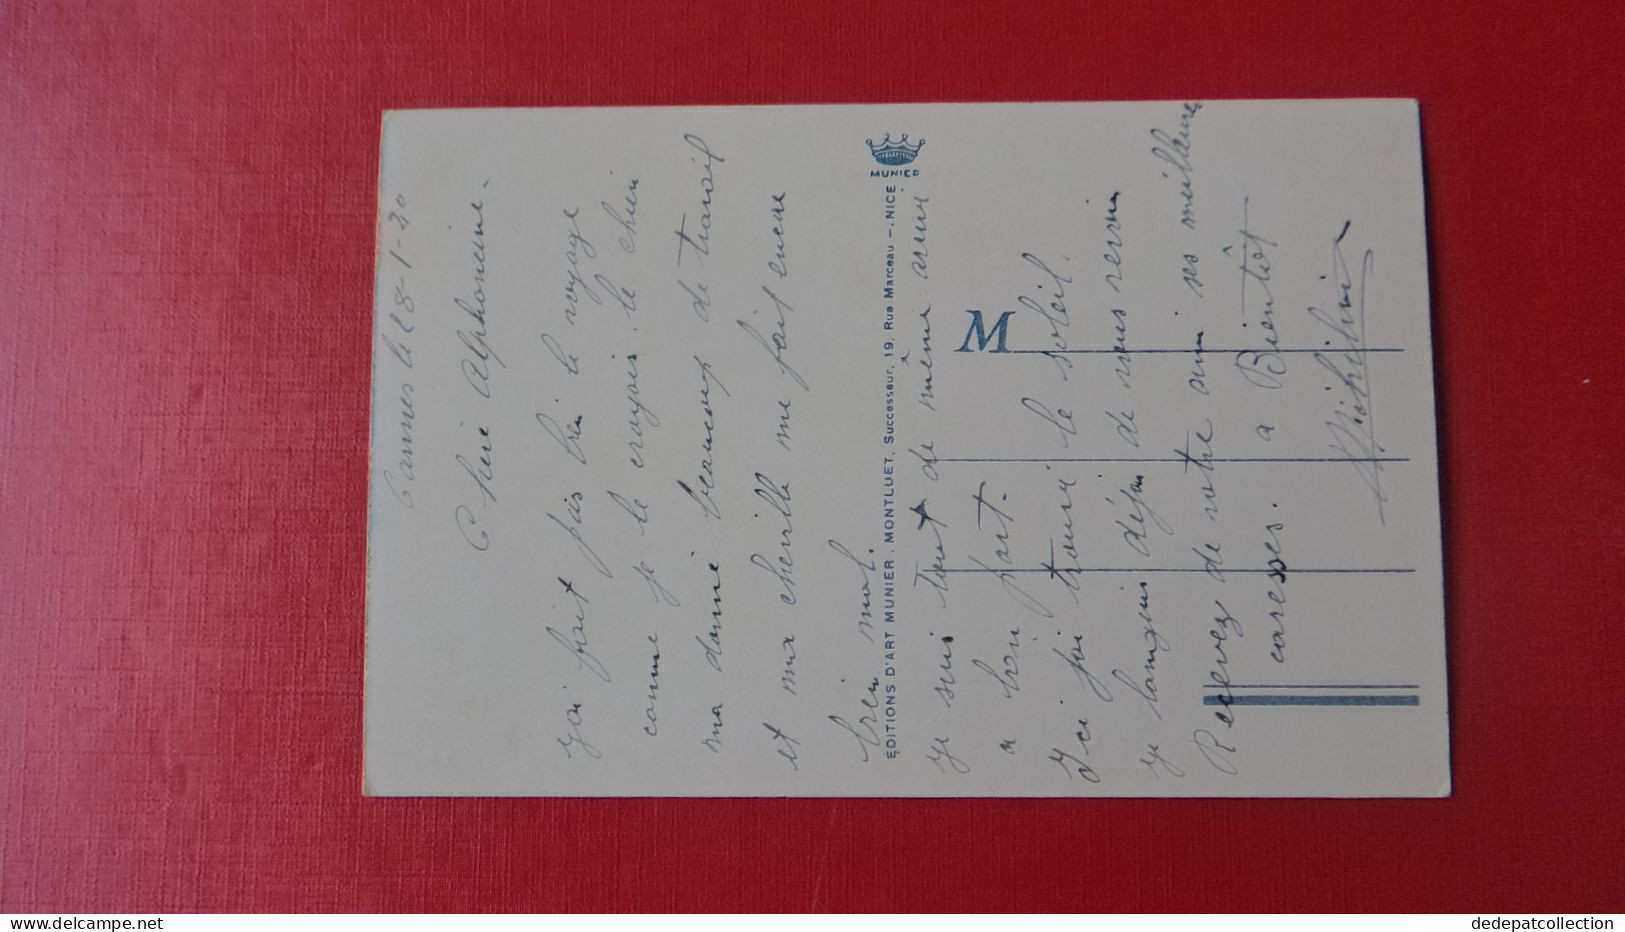 Cannes le 28-1-30
Chère Alphonsine.
J'ai fait pas bien le voyage
comme je le croyais. le chien
ma donné beaucoup de travail
et ma cheville me fait encore
bien mal.
EDITIONS D'ART MUNIER. MONTLUET, Successeur, 19, Rue Marceau - NICE
MUNIER
M
je suis tout de même arrivé
a bon port.
Ici j'ai trouvé le soleil.
je languis déja de vous revoir
Recevez de votre ami ses meilleures
caresses. a Bientôt
dedepatcollection